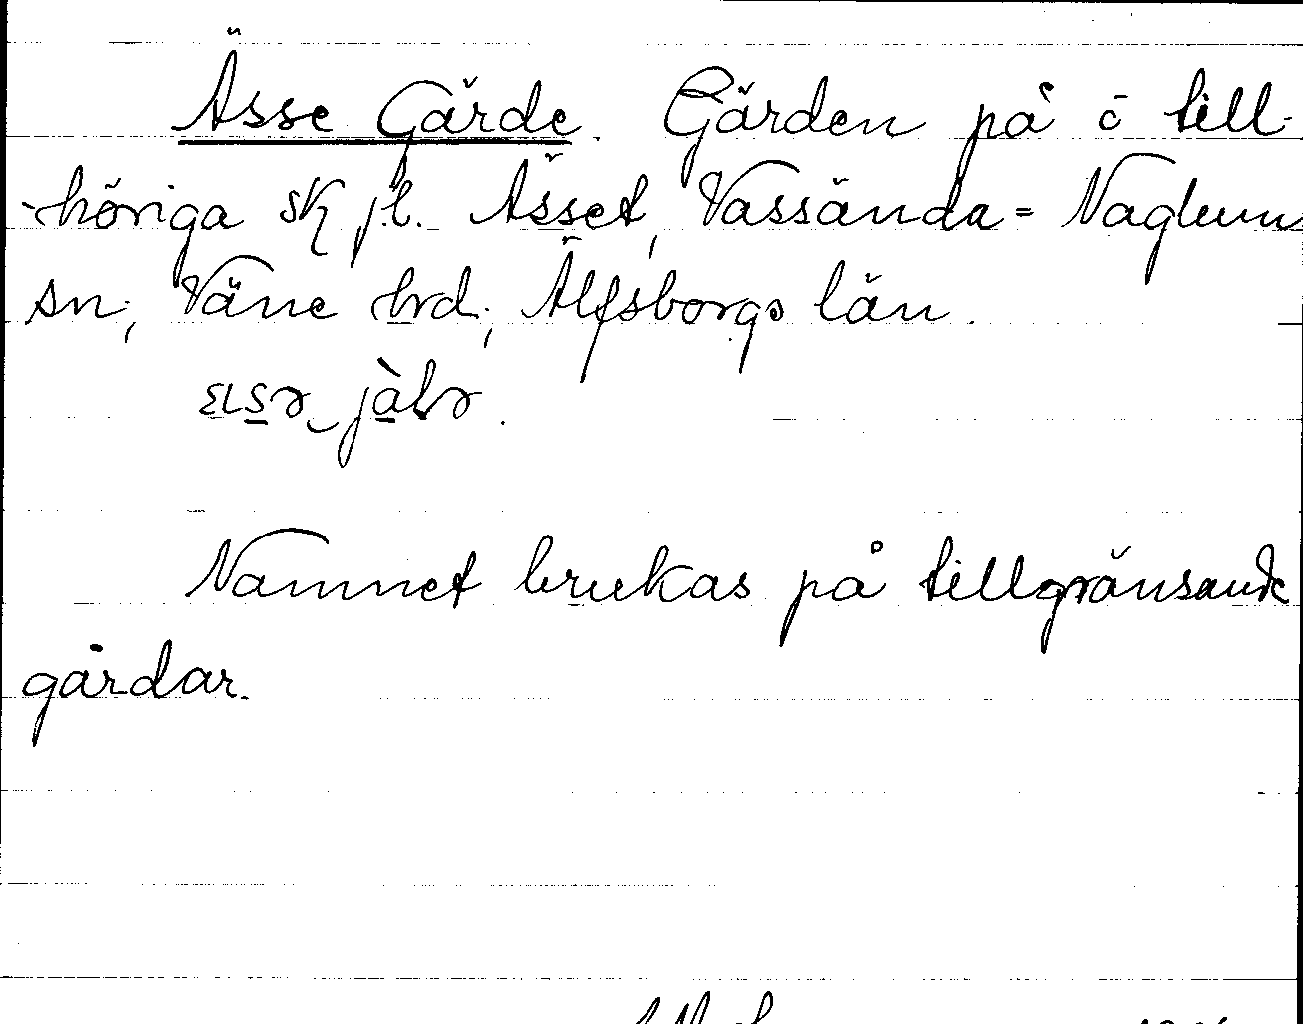 Ässe Gärde. Gärden på ö till-
-höriga sk jl. Ässet, Vassända-Naglum
sn; Väne hrd; Älfsborgs län.
Namnet brukas på tillgränsande
gårdar.